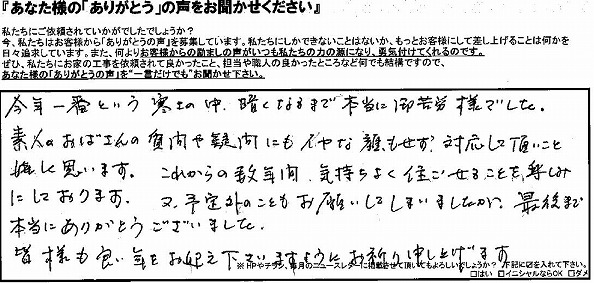 『あなた様の「ありがとう」の声をお聞かせください』
私たちにご依頼されていかがでしたでしょうか？
今、私たちはお客様から「ありがとうの声」を募集しています。私たちにしかできないことはないか、もっとお客様にして差し上げることは何かを
日々追求しています。また、何よりお客様からの励ましの声がいつも私たちの力の源になり、勇気付けてくれるのです。
ぜひ、私たちにお家の工事を依頼されて良かったこと、担当や職人の良かったところなど何でも結構ですので、
あなた様の「ありがとうの声」を“一言だけでも”お聞かせ下さい。
今年一番という寒さの中、暗くなるまで本当に御苦労様でした。
素人のおばさんの質問や疑問にもイヤな顔もせず、対応して頂いこと
嬉しく思います。これからの数年間、気持ちよく住ごせることを楽しみ
にしております。又、予定外のこともお願いしてしまいましたが、最後まで
本当にありがとうございました。
皆様も良い年をお迎え下さいますようにお祈り申し上げます
※HPやチラシ、毎月のニュースレターに掲載させて頂いてもよろしいでしょうか？ 下記に☑を入れて下さい。
□はい □イニシャルならOK □ダメ